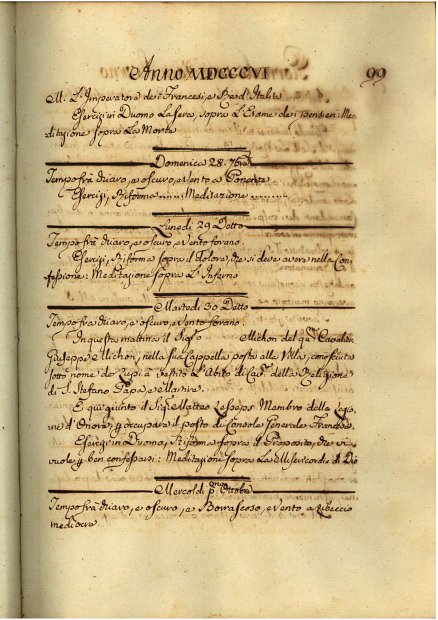 Anno MDCCCVI 99
M. L'Imperatore de i Francesi, e Re d'Italia
Esercizi in Duomo La sera, sopra L'Esame de i pensieri: Me-
ditazione sopra La Morte
Domenica 28: 7bre
Tempo frà chiaro, e oscuro, e Vento a Ponente
Esercizi, Riforma ....... Meditazione ..........
Lunedì 29 Detto
Tempo frà chiaro, e oscuro, e Vento forano.
Esercizi, Riforma sopra il dolore, che si deve avere nella Con-
fessione: Meditazione sopra L'Inferno
Martedì 30 Detto
Tempo frà chiaro, e oscuro, e Vento forano.
In questa mattina il Sigre Michon del qm Cavalier
Giuseppe Michon, nella sua Cappella posta alla Villa, conosciuta
sotto nome de Lupi à vestito L'Abito di Cavre della Religione
di S. Stefano Papa, e Martire.
È quì giunto il Sigre Matteo Lesseps Membro della Legio-
ne d'Onore, p occupare il posto di Console Generale Francese.
Esercizi in Duomo, Riforma sopra il Proposito, che vi
vuole p ben confessarsi: Meditazione sopra La Misericordia di Dio
Mercoldì pmo Ottobre
Tempo frà chiaro, e oscuro, e Borrascoso, e Vento a Libeccio
mediocre